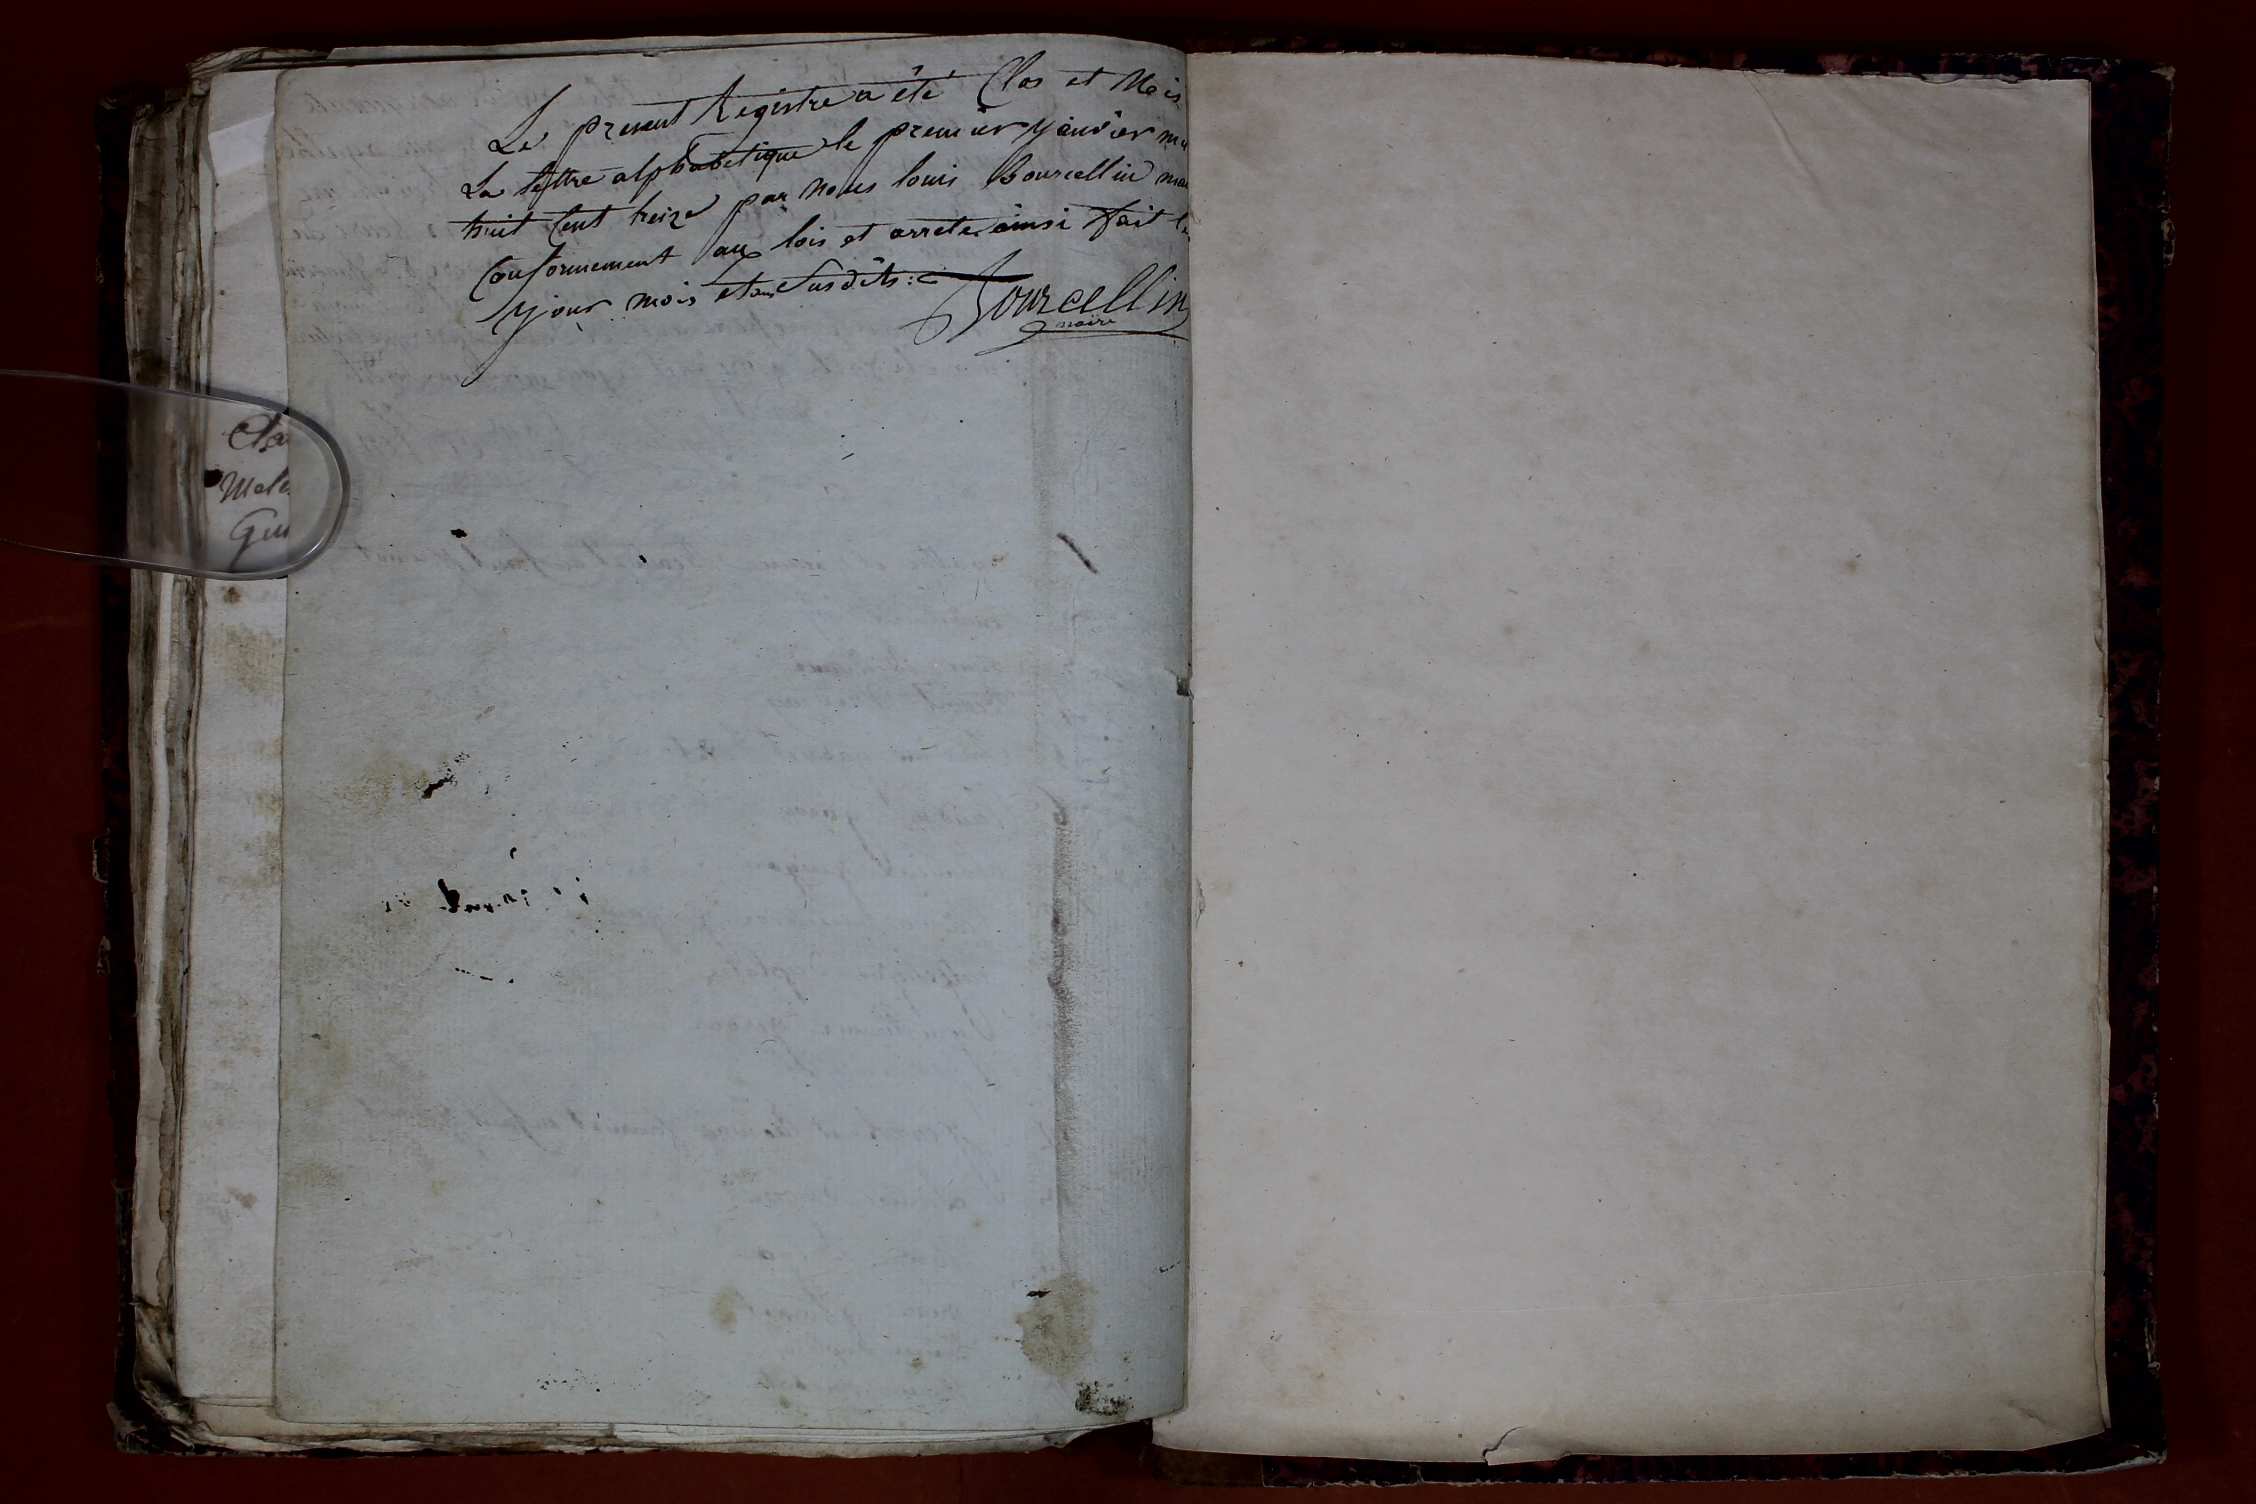 Le present Registre a été Clos et Mis
La lettre alphabetique le premier yanvier mil
huit Cent treize par nous louis Bourcellin mai
Conformement aux lois et arretes ainsi fait le
your mois et an Susdits :
Bourcellin
maire
Cla
Mele
Gui